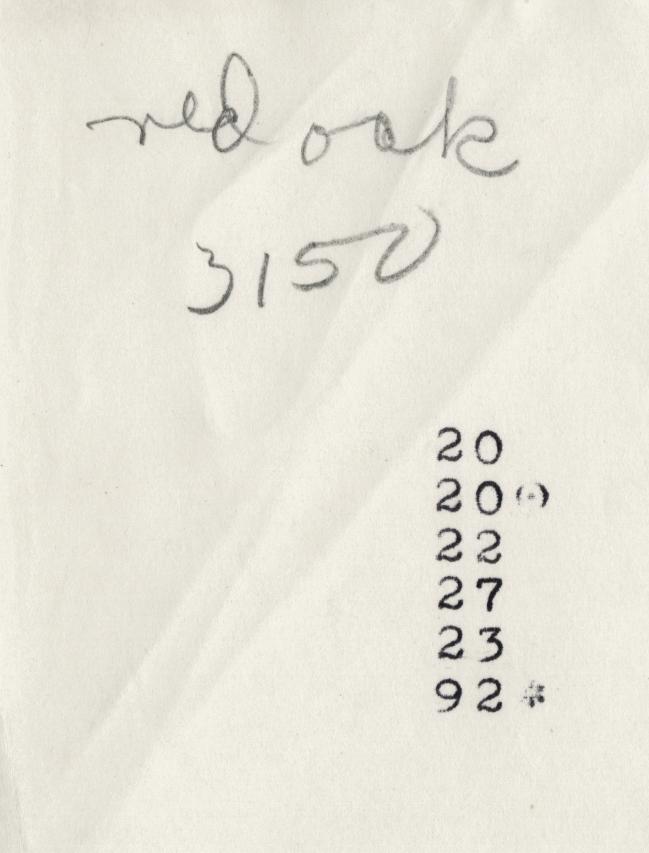 red oak
3150
20
20(-)
22
27
23
92*